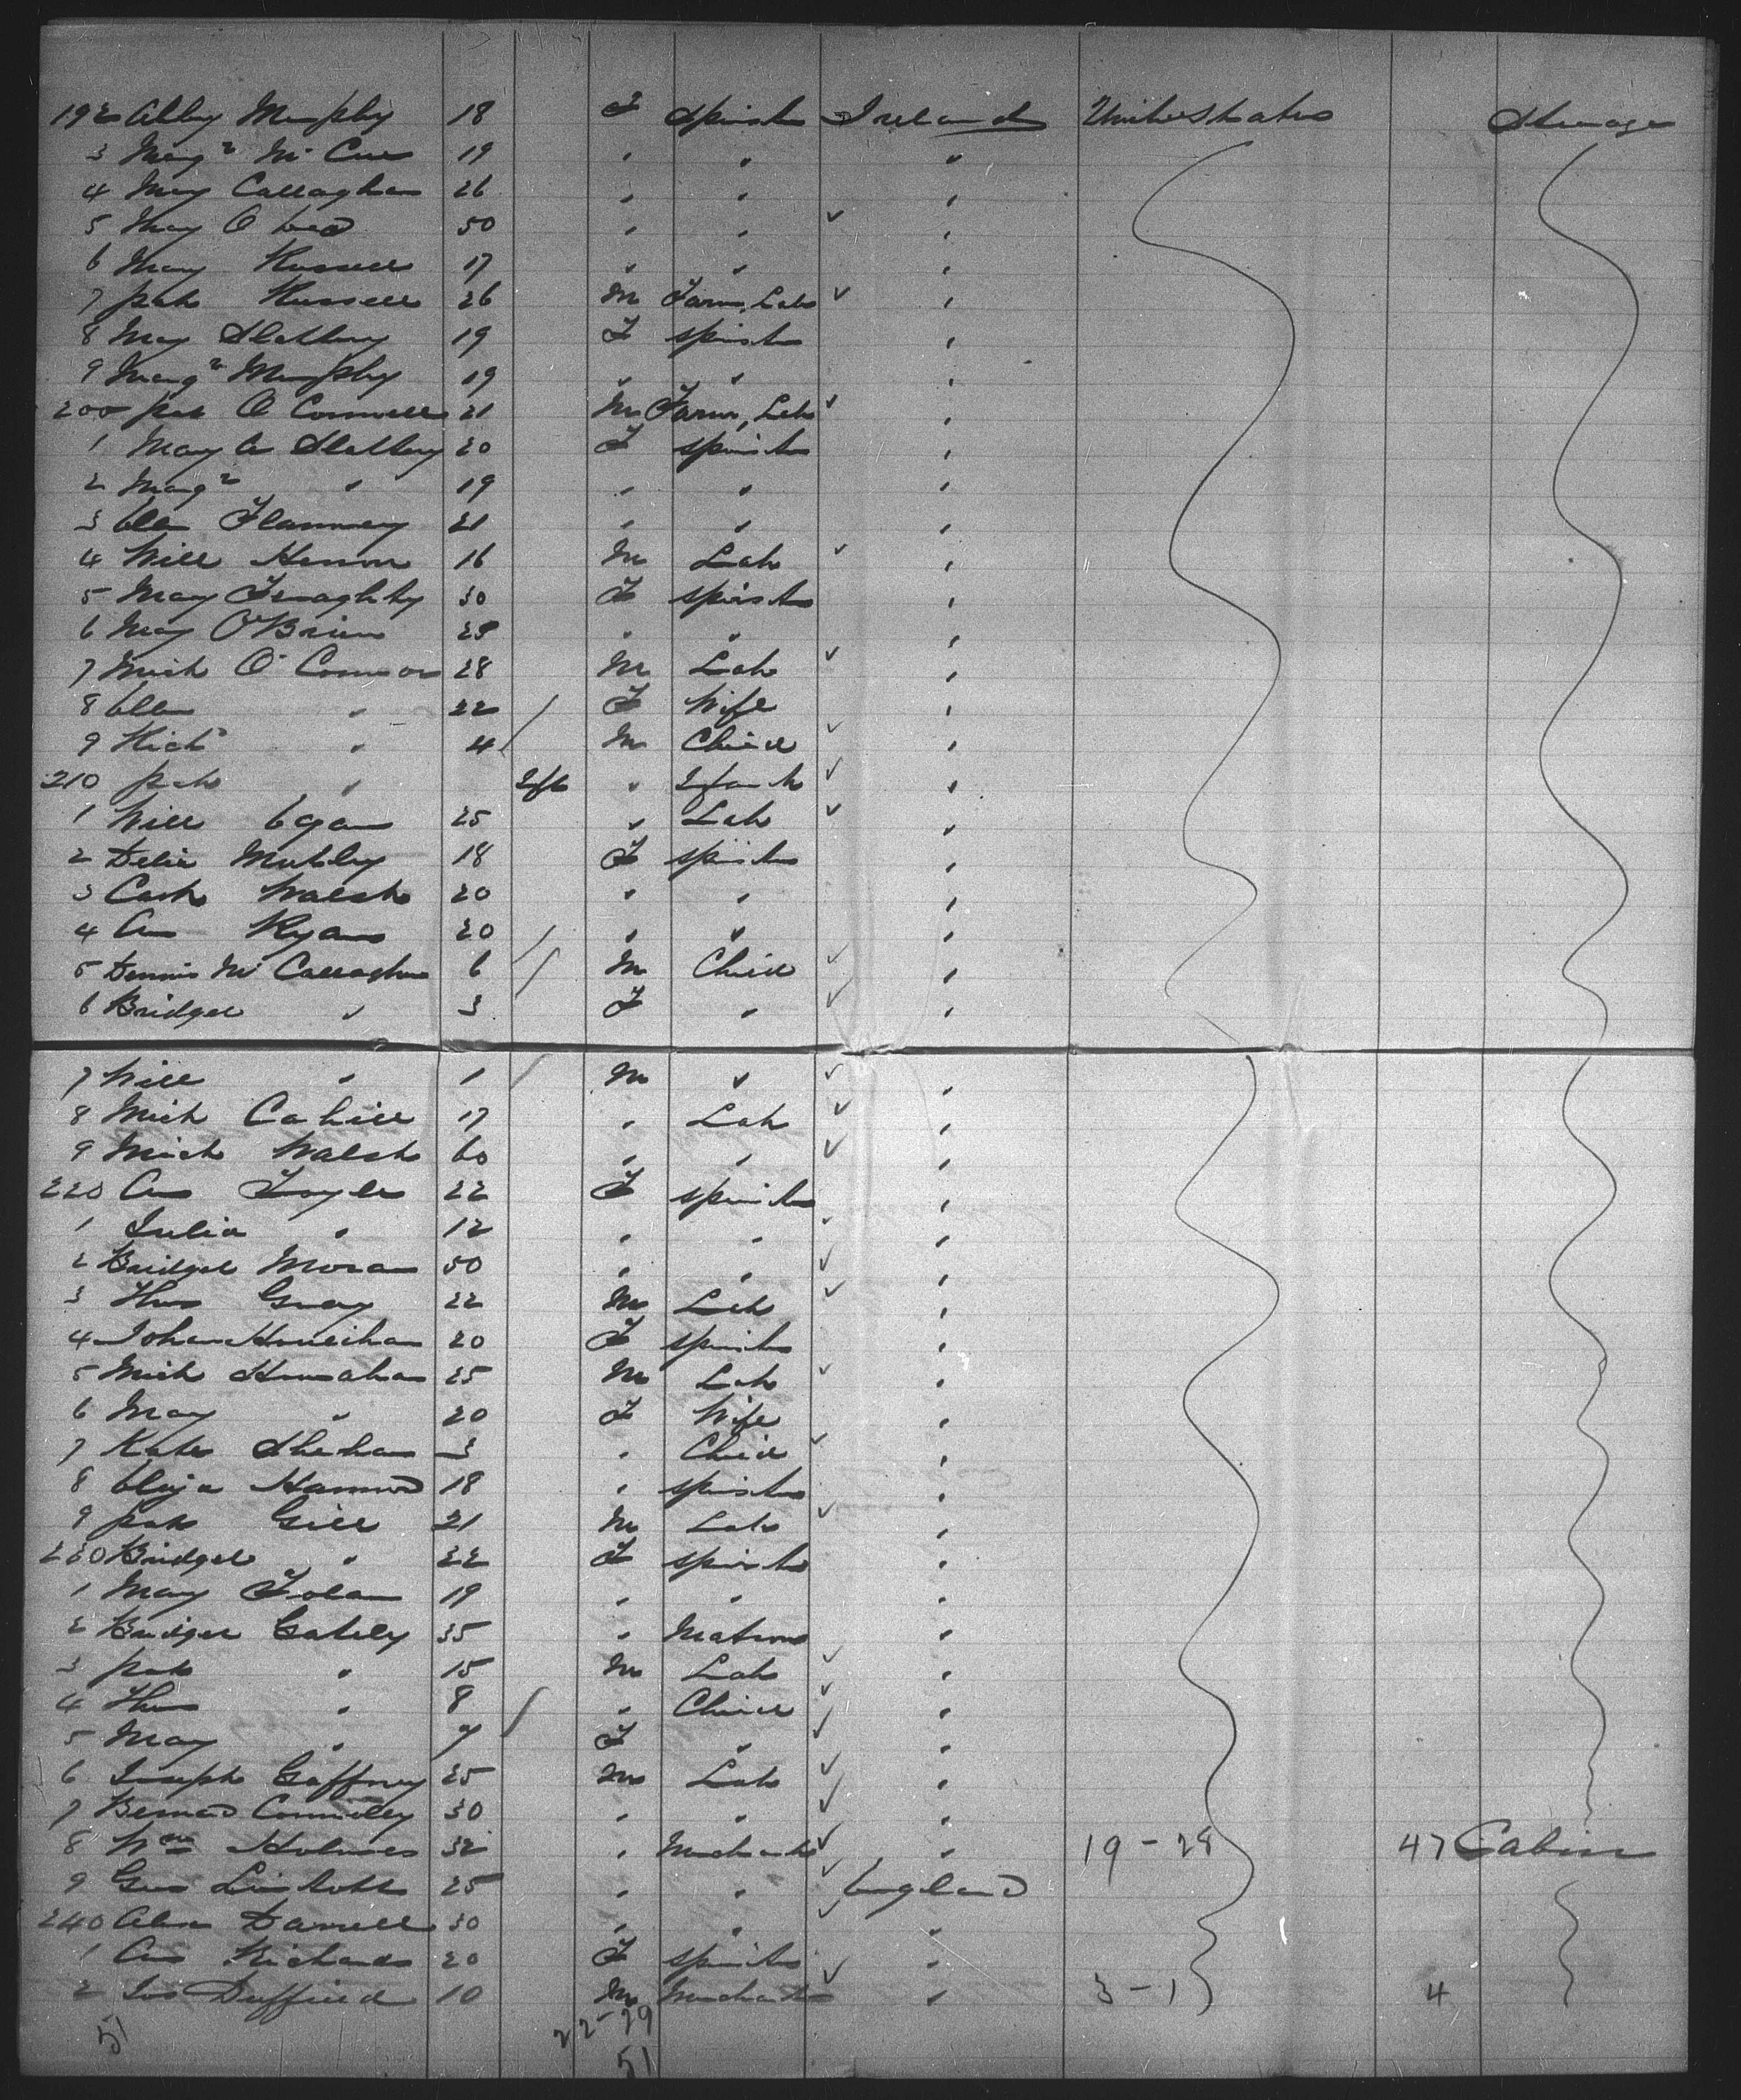 192 Abby Murphy 18 F Spinstr Ireland United States Steerage
3 Marg't McCue 19 " " "
4 Mary Callaghan 26 " " "
5 Mary O 50 " " "
6 Mary Russell 17 " " "
7 Pat Russell 26 M Farm Lab "
8 Mary Slattery 19 F Spinstr "
9 Marg't Murphy 19 " " "
200 Pat O Connell 21 M Farm Lab "
1 Mary A Slattery 20 F Spinstr "
2 Marg't " 19 " " "
3 Elln Flannery 21 " " "
4 Will 16 M Lab "
5 Mary Geraghty 30 F Spinstr "
6 Mary O'Brien 25 " " "
7 Mich O'Connor 28 M Lab "
8 Elln " 22 F Wife "
9 Rich'd " 4 M Child "
210 Pat " Inft " Infant "
1 Will Egan 25 " Lab "
2 Delia 18 F Spinstr "
3 Cath Walsh 20 " " "
4 An Ryan 20 " " "
5 Dennis McCallaghan 6 M Child "
6 Bridget " 3 F " "
7 Will " 1 M " "
8 Mich Cahill 17 " Lab "
9 Mich Walsh 60 " " "
220 An 22 F Spinstr "
1 Julia " 12 " " "
2 Bridget Moran 50 " " "
3 Thos 22 M Lab "
4 Johan Houlihan 20 F Spinstr "
5 Mich 25 M Lab "
6 Mary " 20 F Wife "
7 Kate Shehan 3 " Child "
8 Eliza 18 " Spinstr "
9 Pat Gill 21 M Lab "
230 Bridget " 22 F Spinstr "
1 Mary Folan 19 " " "
2 Bridget Gately 35 " Matron "
3 Pat " 15 M Lab "
4 Thos " 8 " Child "
5 Mary " 7 F " "
6 Joseph Gaffney 25 M Lab "
7 Bernard Connolley 30 " " "
8 Wm Holmes 32 " Merchant " 19-28 47 Cabin
9 Geo 25 " " England
240 Alex Darrell 30 " " "
1 An Richards 20 F Spinstr "
2 Jos Duffield 10 M Merchant " 3-1 4
51 22-29
51